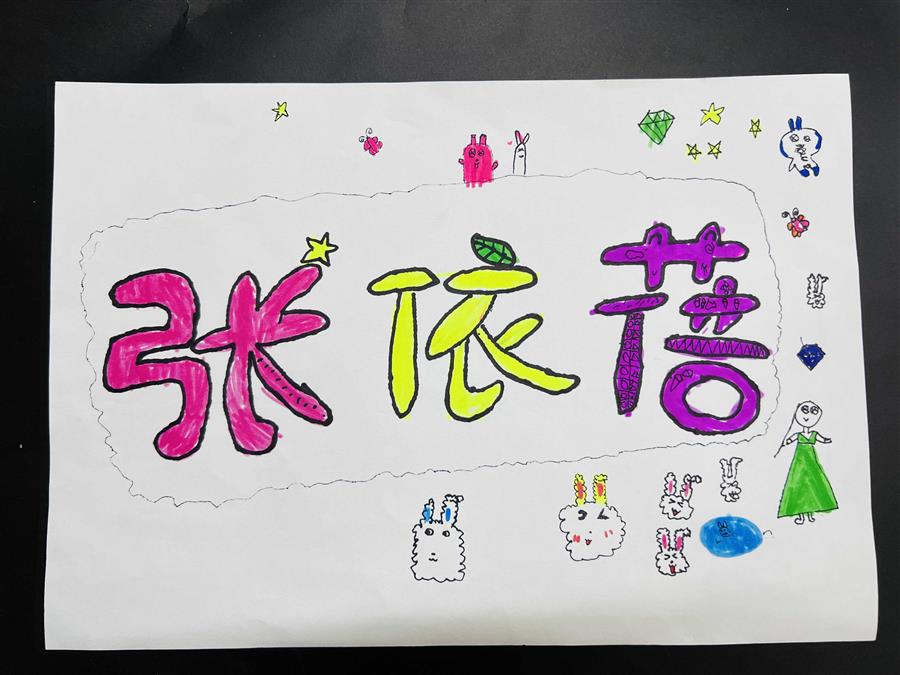 张依蓓